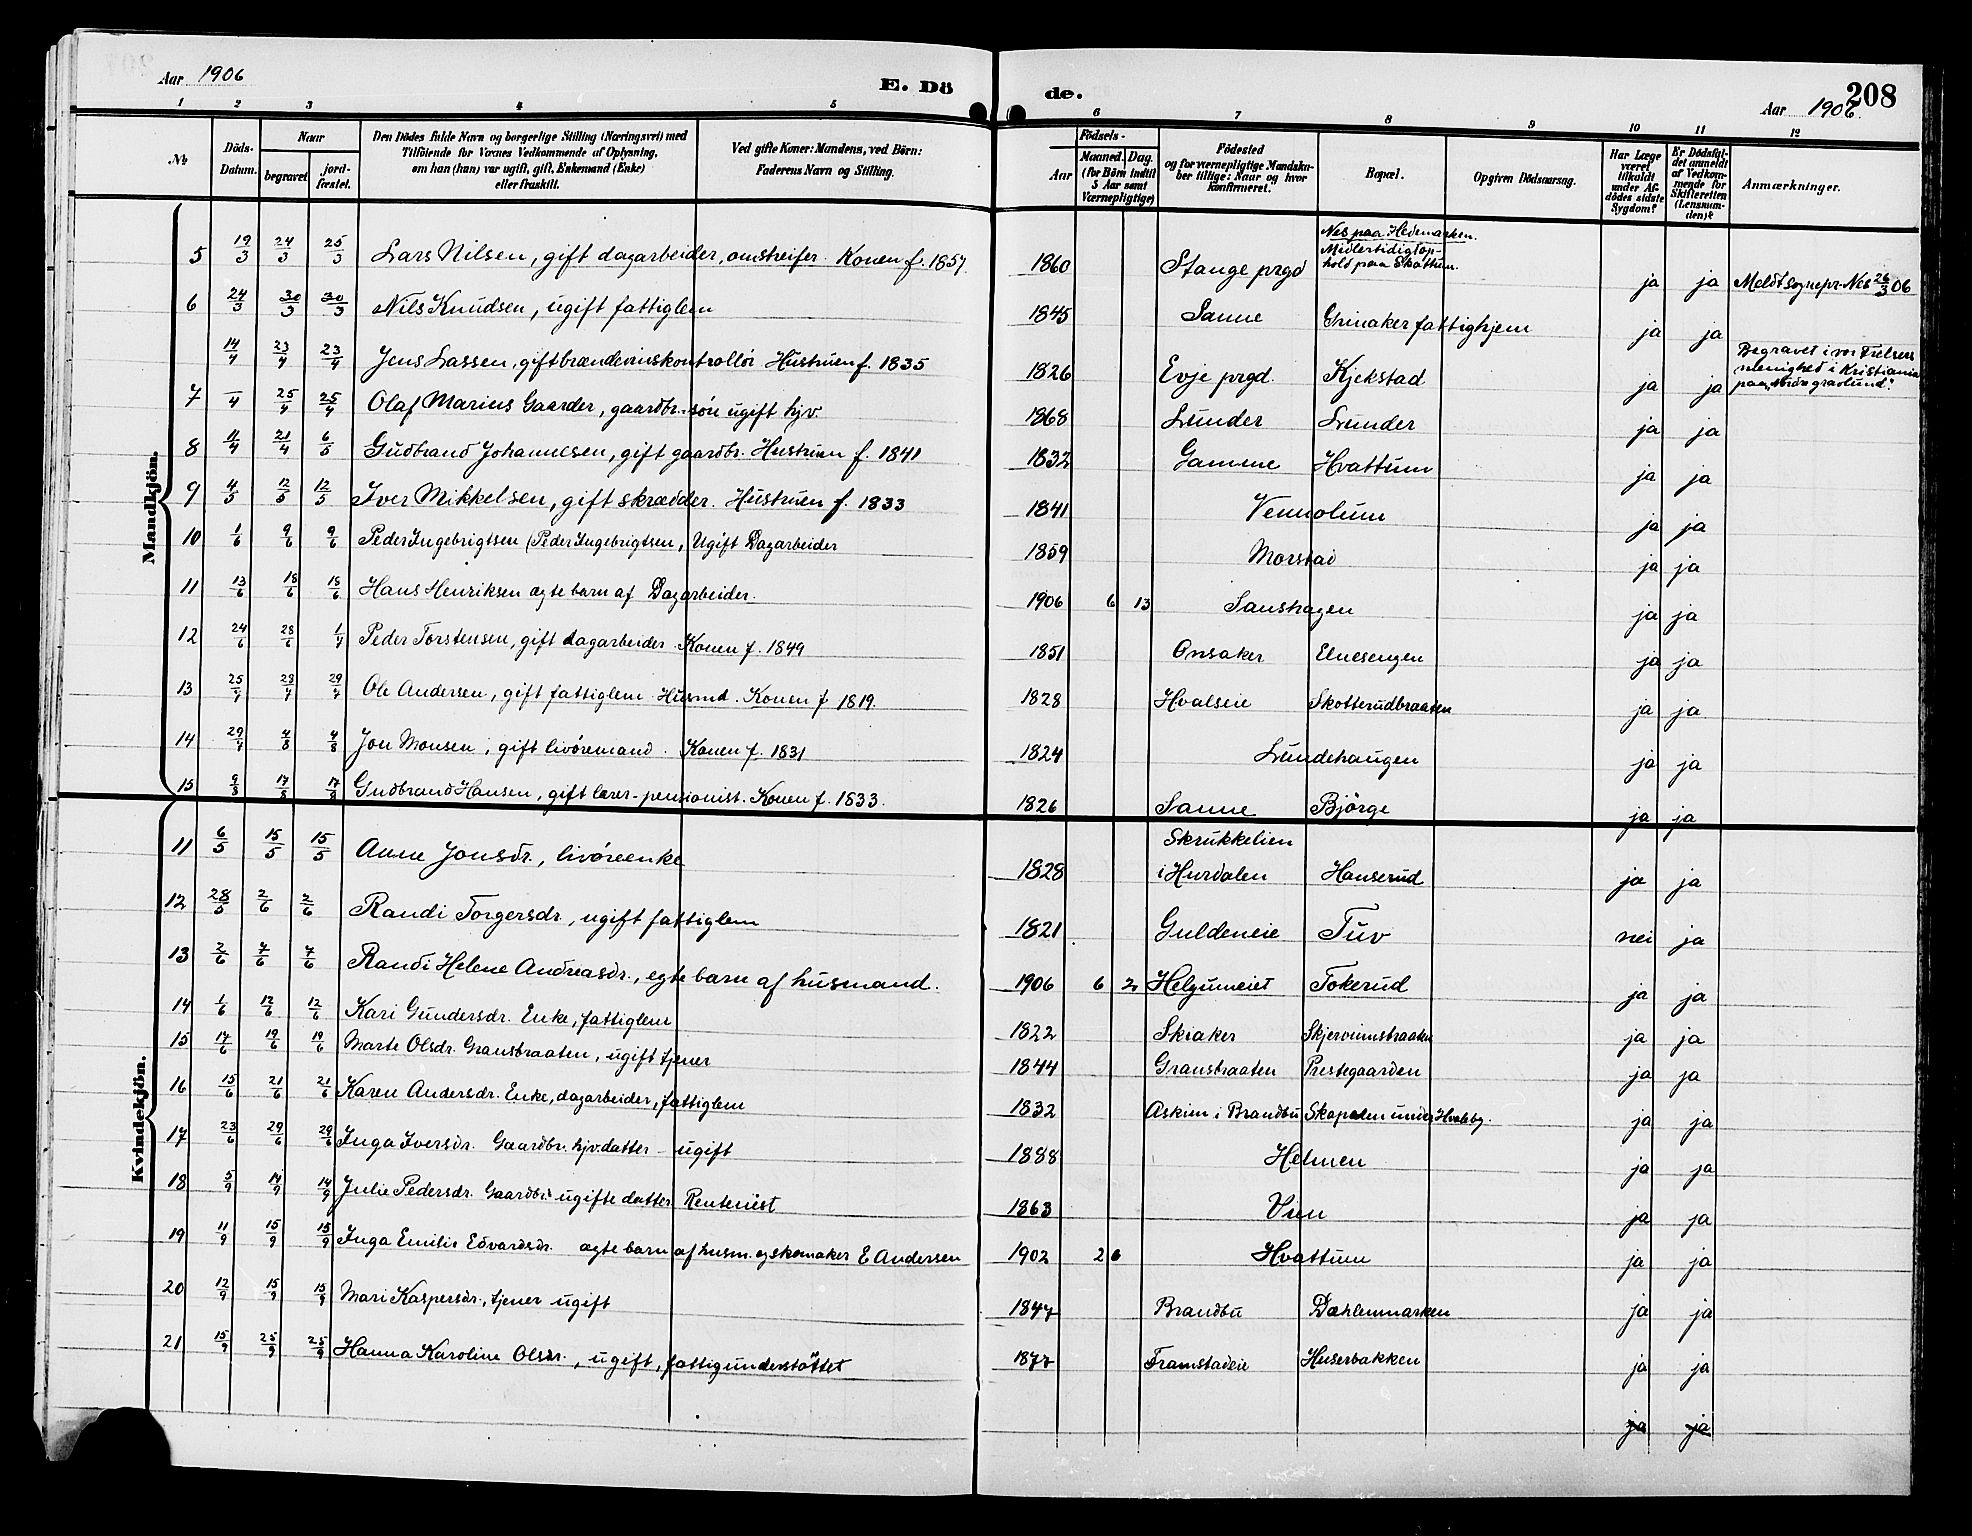 Aar 1906 E. Dö de. Aar 1906. 208
1 2 3 4 5 6 7 8 9 10 11 12
No Döds-Datum. Naar begravet jord-fæstet. Den Dödes fulde Navn og borgerlige Stilling (Næringsvei) med Tilföiende for Voxnes Vedkommende af Oplysning, om han (hun) var ugift, gift, Enkemand (Enke) eller fraskilt. Ved gifte Koner: Mandens, ved Börn: Faderens Navn og Stilling. Födsels- Aar Maaned. Dag. (for Börn indtil 5 Aar samt Værnepligtige) Födested og for værnepligtige Mandskaber tillige: Naar og hvor konfirmeret. Bopæl. Opgiven Dödsaarsag. Har Læge været tilkaldt under Afdödes sidste Sygdom? Er Dödsfaldet anmeldt af Vedkommende for Skifteretten (Lensmanden)? Anmærkninger.
Mandkjön.
5 19/3 24/3 25/3 Lars Nilsen, gift dagarbeider, omstreifer. Konen f. 1857. 1860 Stange prgd Nes paa Hedemarken. Midlertidig ophold paa Skattum. ja ja Meldt sognepr. Nes 26/3 06
6 24/3 30/3 30/3 Nils Knudsen, ugift fattiglem 1845 Sanne Grinaker fattighjem ja ja
14/4 23/4 23/4 Jens Lassen, gift brændevinskontrollör Hustruen f. 1835 1826 Evje prgd. Kjekstad ja ja Begravet i vor Frelsers menighed i Kristiania paa Nordre gravlund.
7 –/4 25/4 25/4 Olaf Marius Gaarder, gaardbr. sön ugift hjv. 1868 Lunder Lunder ja ja
8 11/4 21/4 6/5 Gudbrand Johannesen, gift gaardbr. Hustruen f. 1841 1832 Gamme Hvattum ja ja
9 4/5 12/5 12/5 Iver Mikkelsen, gift skrædder. Hustruen f. 1833 1841 Vennolum ja ja
10 1/6 9/6 9/6 Peder Ingebrigtsen (Peder Ingebrigtsen, Ugift Dagarbeider 1859 Morstad ja ja
11 13/6 18/6 18/6 Hans Henriksen ægte barn af Dagarbeider. 1906 6 13 Sanshagen ja ja
12 24/6 28/6 1/7 Peder Torstensen, gift dagarbeider. Konen f. 1849 1851 Onsaker Elnesengen ja ja
13 25/7 28/7 29/7 Ole Andersen, gift fattiglem Husmd. Konen f. 1819. 1828 Hvalseie Skotterudbraaten ja ja
14 29/7 4/8 4/8 Jon Monsen, gift livöremand. Konen f. 1831 1824 Lundehaugen ja ja
15 9/8 17/8 17/8 Gudbrand Hansen, gift lærer-pensionist. Konen f. 1833. 1826 Sanne Björge ja ja
Kvindekjön.
11 6/5 15/5 15/5 Anne Jonsdr., livöreenke 1828 Skrukkelien i Hurdalen Hanserud ja ja
12 28/5 2/6 2/6 Randi Torgersdr., ugift fattiglem 1821 Guldeneie Tuv nei ja
13 2/6 7/6 7/6 Randi Helene Andreasdr., egte barn af husmand. 1906 6 2 Helgumeiet Tokerud ja ja
14 1/6 12/6 12/6 Kari Gundersdr. Enke, fattiglem 1822 Skiaker Skjervumsbraaten ja ja
15 17/6 19/6 19/6 Marte Olsdr. Gransbraaten, ugift tjener 1844 Gransbraaten Prestegaarden ja ja
16 15/6 21/6 21/6 Karen Andersdr. Enke, dagarbeider, fattiglem 1832 Askim i Brandbu Skoparen under Hvaleby. ja ja
17 23/6 29/6 29/6 Inga Iversdr. Gaardbr. hjv. datter – ugift 1888 Helmen ja ja
18 5/9 14/9 14/9 Julie Pedersdr. Gaardbr. ugifte datter Rentenist 1863 Vien ja ja
19 11/9 15/9 15/9 Inga Emilie Edvardsdr. ægte barn af husm. og skomaker E Andersen 1902 2 6 Hvattum ja ja
20 12/9 15/9 15/9 Mari Kaspersdr., tjener ugift 1847 Brandbu Dæhlenmarken ja ja
21 15/9 25/9 25/9 Hanna Karoline Olsdr., ugift, fattigunderstöttet 1877 Framstadeie Huserbakken ja ja
ja ja